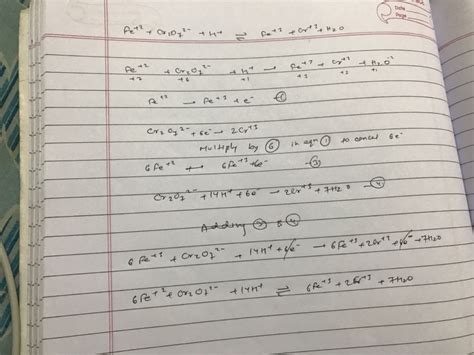 Date
Page
Fe+2 + Cr2O7 2- + H+ ⇌ Fe+3 + Cr+3 + H2O
Fe+2 + Cr2O7 2- + H+ → Fe+3 + Cr+3 + H2O
+2 +6 +1 +3 +3 +1
Fe+2 → Fe+3 + e-
Cr2O7 2- + 6e- → 2Cr+3
Multiply by 6 in eqn 1 to cancel 6e-
6Fe+2 → 6Fe+3 + 6e- - 3
Cr2O7 2- + 14H+ + 6e- → 2Cr+3 + 7H2O - 4
Adding 3 & 4
6Fe+2 + Cr2O7 2- + 14H+ + 6e- → 6Fe+3 + 2Cr+3 + 6e- + 7H2O
6Fe+2 + Cr2O7 2- + 14H+ ⇌ 6Fe+3 + 2Cr+3 + 7H2O